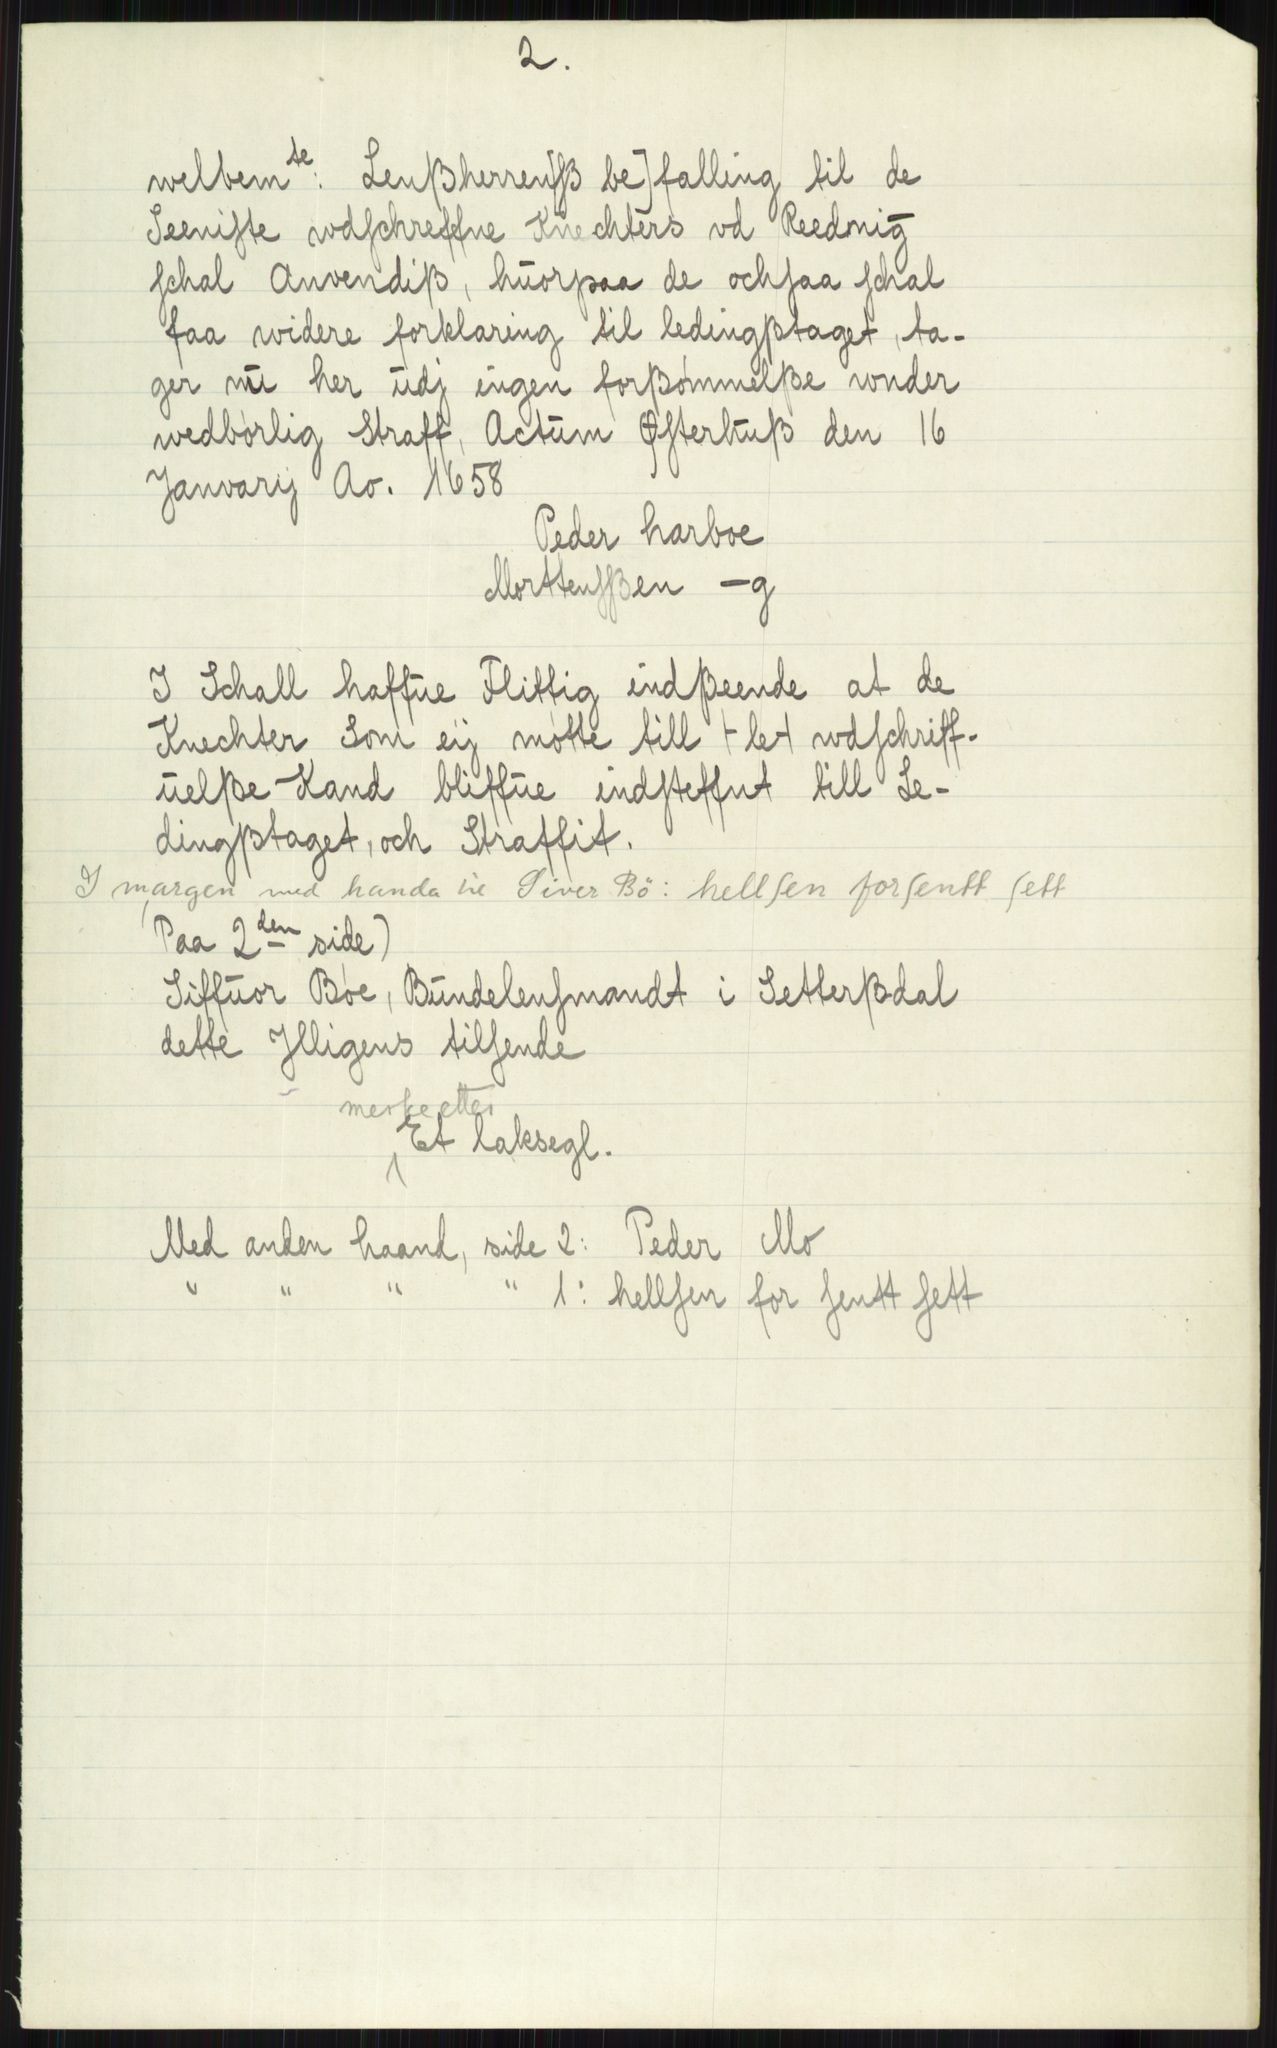 2.
welbem te: Lenßherren[ſß be]falling til de
Seeniſte wdſchreffne Knechters vd Reednig
ſchal Anvendiß, hŭorpaa de ochſaa ſchal
faa widere forklaring til ledingßtaget, ta-
ger nŭ her ŭdj eŋgen forßømmelße wnder
wedbørlig Straff, Actŭm Øſterhŭß den 16
Janvarij Ao. 1658
Peder harboe
Morttenſßen —g
I Schall haffŭe Flittig indßeende at de
Knechter Som eij møtte till + let wdſchriff-
ŭelße Kand bliffŭe indſteffnt till Le-
dingßtaget, och Straffit.
I margen med handa åt Siver Bö: hellſen forſentt ſett
(Paa 2den side)
Siffŭor Bøe, Bŭndelenſmandt i Setterßdal
dette Jlligens tilſende
merke etter
Et laksegl.
Med anden haand, side 2: Peder Mo
" " " " 1: hellſen for ſentt ſett